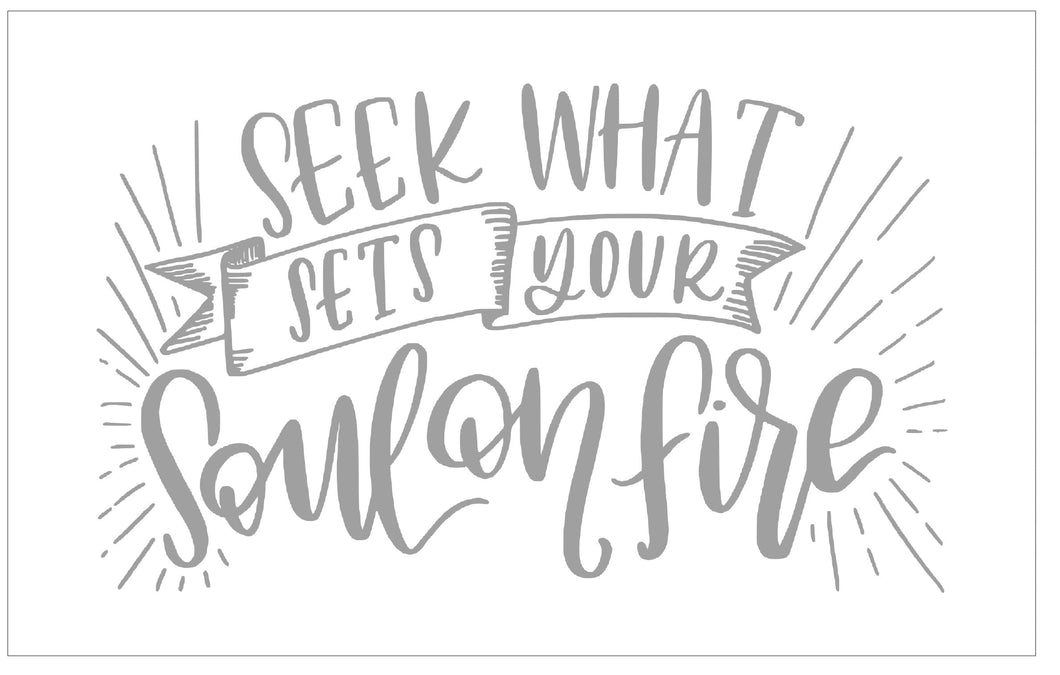 SEEK WHAT
SETS YOUR
Soul on fire